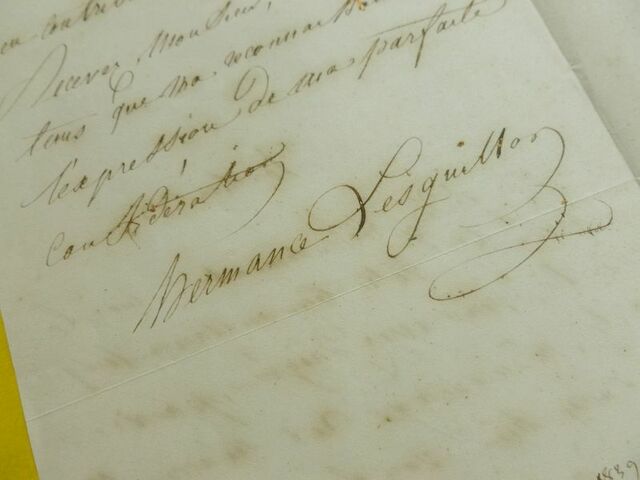 en contrib
Recevez, Monsieur,
tems que ma reconnais
l'expression de ma parfaite
considération
Hermance Lesguillon
1839